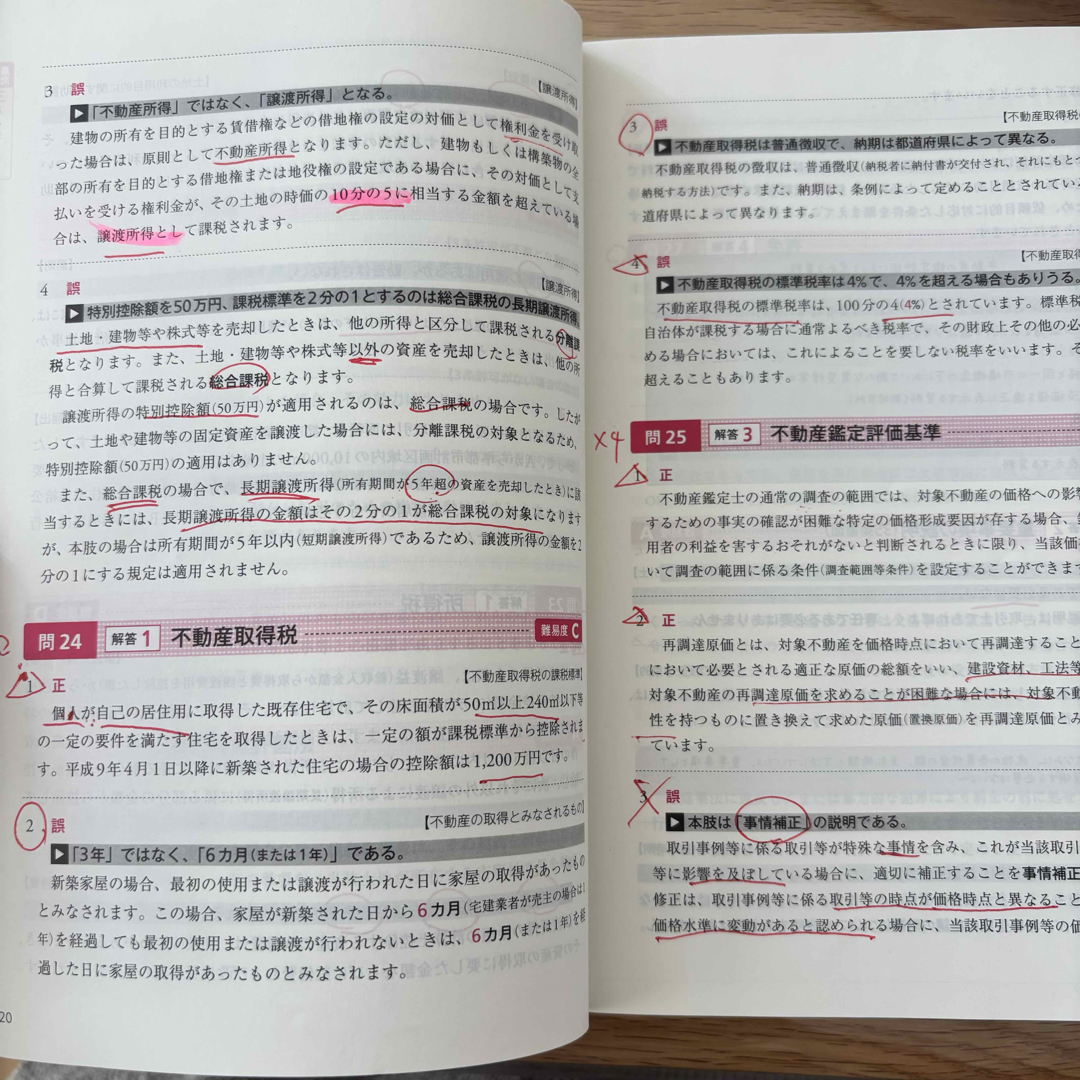 3 誤
【譲渡所得】
▶「不動産所得」ではなく、「譲渡所得」となる。
建物の所有を目的とする賃借権などの借地権の設定の対価として権利金を受け取
った場合は、原則として不動産所得となります。ただし、建物もしくは構築物の全
部の所有を目的とする借地権または地役権の設定である場合に、その対価として支
払いを受ける権利金が、その土地の時価の10分の5に相当する金額を超えている場
合は、譲渡所得として課税されます。
4 誤
【譲渡所得】
▶特別控除額を50万円、課税標準を2分の1とするのは総合課税の長期譲渡所得。
土地・建物等や株式等を売却したときは、他の所得と区分して課税される分離課
税となります。また、土地・建物等や株式等以外の資産を売却したときは、他の所
得と合算して課税される総合課税となります。
譲渡所得の特別控除額(50万円)が適用されるのは、総合課税の場合です。したが
って、土地や建物等の固定資産を譲渡した場合には、分離課税の対象となるため、
特別控除額(50万円)の適用はありません。
また、総合課税の場合で、長期譲渡所得(所有期間が5年超の資産を売却したとき)に該
当するときには、長期譲渡所得の金額はその2分の1が総合課税の対象になります
が、本肢の場合は所有期間が5年以内(短期譲渡所得)であるため、譲渡所得の金額を2
分の1にする規定は適用されません。
問24 解答1 不動産取得税 難易度C
1 正
【不動産取得税の課税標準
個人が自己の居住用に取得した既存住宅で、その床面積が50㎡以上240㎡以下等
の一定の要件を満たす住宅を取得したときは、一定の額が課税標準から控除されま
す。平成9年4月1日以降に新築された住宅の場合の控除額は1,200万円です。
2 誤
【不動産の取得とみなされるもの】
▶「3年」ではなく、「6カ月(または1年)」である。
新築家屋の場合、最初の使用または譲渡が行われた日に家屋の取得があったもの
とみなされます。この場合、家屋が新築された日から6カ月(宅建業者が売主の場合は1
年)を経過しても最初の使用または譲渡が行われないときは、6カ月(または1年)を経
過した日に家屋の取得があったものとみなされます。
20
3 誤
【不動産取得税の
▶不動産取得税は普通徴収で、納期は都道府県によって異なる。
不動産取得税の徴収は、普通徴収(納税者に納付書が交付され、それにもとづ
納税する方法)です。また、納期は、条例によって定めることとされてい
道府県によって異なります。
4 誤
【不動産取得
▶不動産取得税の標準税率は4%で、4%を超える場合もありうる。
不動産取得税の標準税率は、100分の4(4%)とされています。標準税
自治体が課税する場合に通常よるべき税率で、その財政上その他の必
める場合においては、これによることを要しない税率をいいます。そ
超えることもあります。
×4
問25 解答3 不動産鑑定評価基準
1 正
不動産鑑定士の通常の調査の範囲では、対象不動産の価格への影
するための事実の確認が困難な特定の価格形成要因が存する場合、
用者の利益を害するおそれがないと判断されるときに限り、当該価
いて調査の範囲に係る条件(調査範囲等条件)を設定することができま
2 正
再調達原価とは、対象不動産を価格時点において再調達すること
において必要とされる適正な原価の総額をいい、建設資材、工法等
対象不動産の再調達原価を求めることが困難な場合には、対象不動
性を持つものに置き換えて求めた原価(置換原価)を再調達原価とみ
ています。
3 誤
▶本肢は「事情補正」の説明である。
取引事例等に係る取引等が特殊な事情を含み、これが当該取引
等に影響を及ぼしている場合に、適切に補正することを事情補正
修正は、取引事例等に係る取引等の時点が価格時点と異なること
価格水準に変動があると認められる場合に、当該取引事例等の価